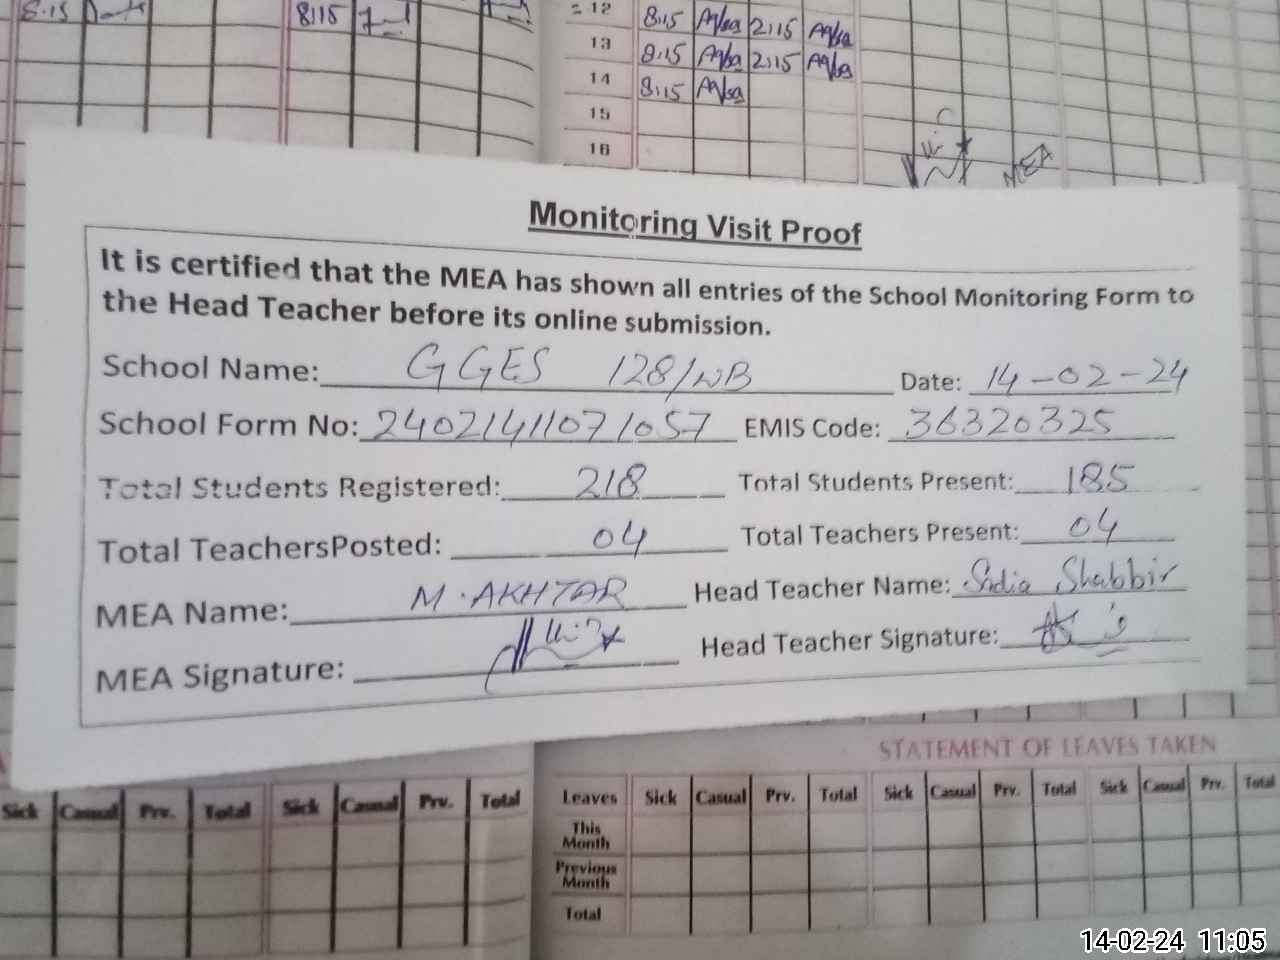 8:15
8:15
= 12 8:15 Aqsa 2:15 Aqsa
13 8:15 Aqsa 2:15 Aqsa
14 8:15 Aqsa
15
16
MEA
Monitoring Visit Proof
It is certified that the MEA has shown all entries of the School Monitoring Form to
the Head Teacher before its online submission.
School Name: GGES 128/WB Date: 14-02-24
School Form No: 24021411071057 EMIS Code: 36320325
Total Students Registered: 218 Total Students Present: 185
Total TeachersPosted: 04 Total Teachers Present: 04
MEA Name: M. AKHTAR Head Teacher Name: Sadia Shabbir
MEA Signature: Head Teacher Signature:
STATEMENT OF LEAVES TAKEN
Sick Casual Prv. Total Sick Casual Prv. Total Leaves Sick Casual Prv. Total Sick Casual Prv. Total Sick Casual Prv. Total
This
Month
Previous
Month
Total
14-02-24 11:05